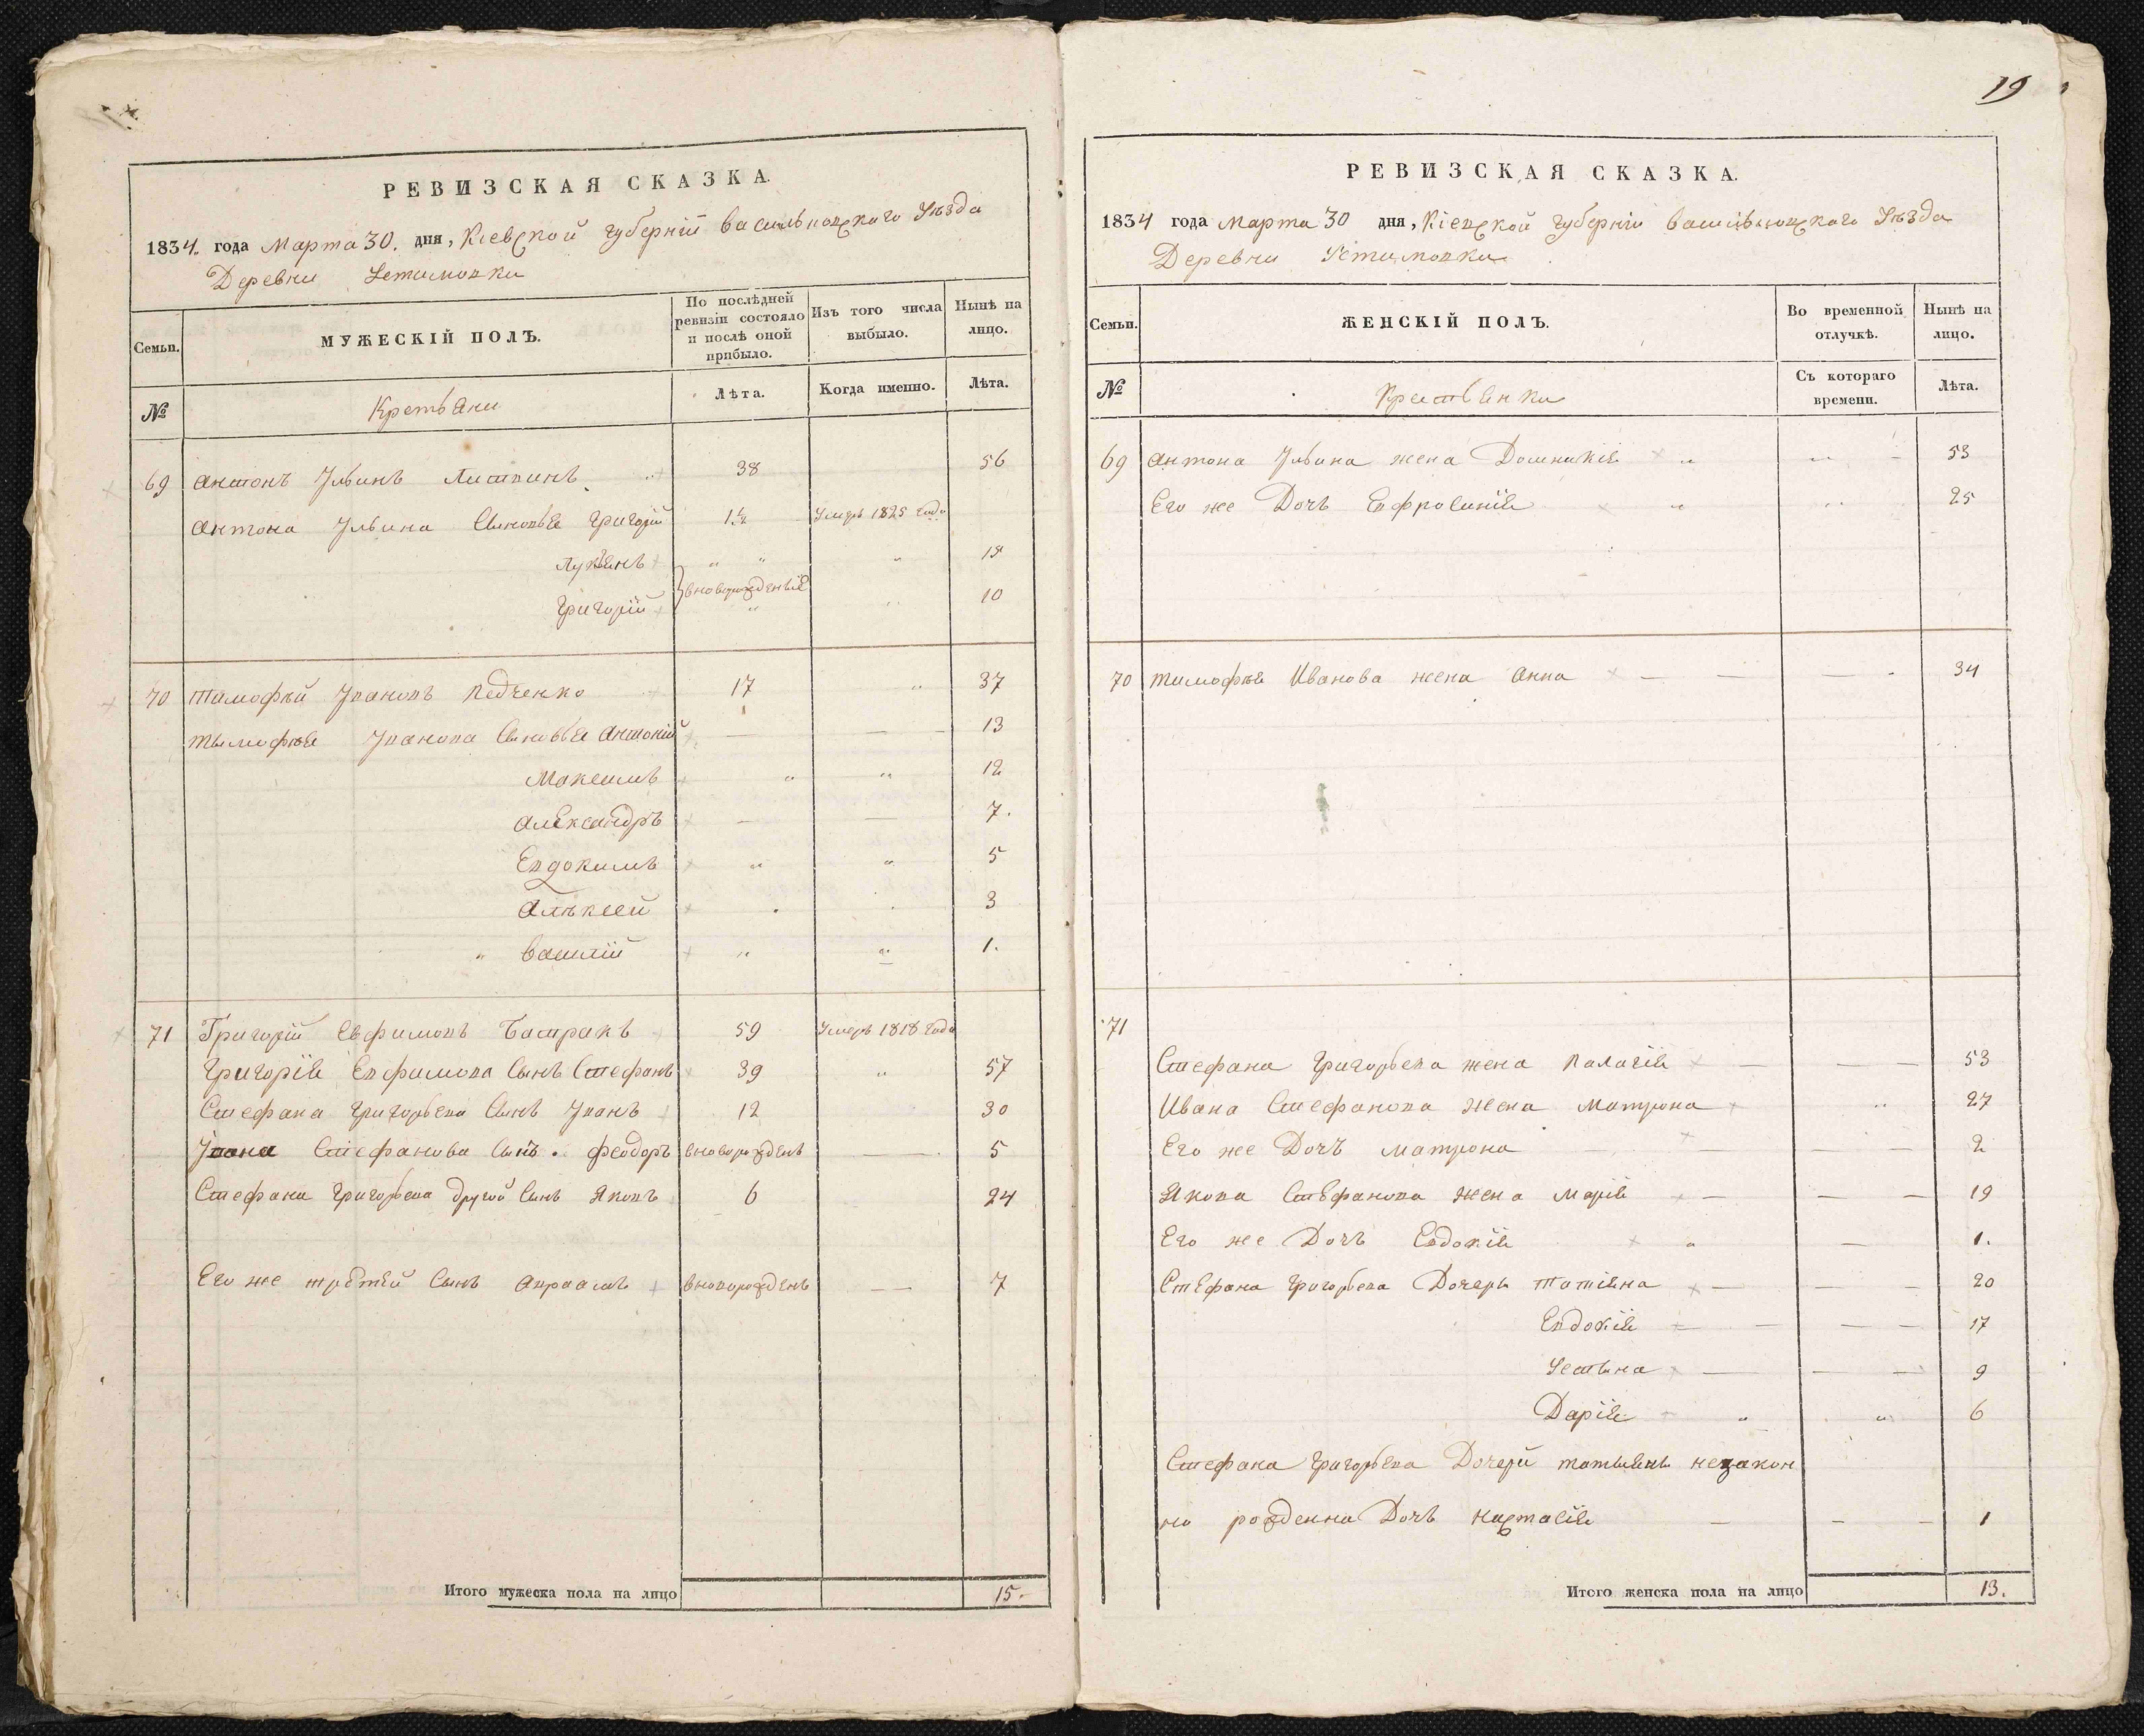 19
РЕВИЗСКАЯ СКАЗКА.
1834. года Марта 30. дня, Кіевской губерніи Васильковскаго Уѣзда
Деревни Устимовки
Семьи.
МУЖЕСКІЙ ПОЛЪ.
По послѣдней ревизіи состояло и послѣ оной прибыло.
Изъ того числа выбыло.
Нынѣ на лицо.
№
Крестьяни
Лѣта.
Когда именно.
Лѣта.
69 Антонъ Ульинъ Литвинъ 38 56
Антона Ульина Сыновья Григорій 1½ Умеръ 1825 Года
Лукьянъ " " " 18
Григорій вноворожденыя " " 10
70 Тимофей Ивановъ Педченко 17 " 37
Тымофѣя Иванова Сыновья Антоній — — 13
Максимъ " " 12
Александръ — — 7.
Евдокимъ " " 5
Алѣксей 3
" Василій " " 1.
71 Григорій Евфимовъ Батракъ 59 Умеръ 1818 Года
Григорія Евфимова Сынъ Стефанъ 39 " 57
Стефана Григорьева Сынъ Иванъ 12 30
Ивана Стефанова Сынъ. Феодоръ вноворожденъ — 5
Стефана Григорьева другой Сынъ Яковъ 6 24
Его же третей Сынъ Авраамъ вноворожденъ — 7
Итого мужеска пола на лицо 15.
РЕВИЗСКАЯ СКАЗКА.
1834 года Марта 30 дня, Кіевской губерніи Васильковскаго Уѣзда
Деревни Устимовки
Семьи.
ЖЕНСКІЙ ПОЛЪ.
Во временной отлучкѣ.
Нынѣ на лицо.
№
Крестьянки
Съ котораго времени.
Лѣта.
69 Антона Ульина жена Домникія " " 53
Его же Дочъ Евфросинія " " 25
70 Тимофѣя Иванова жена Анна — — — 34
71
Стефана Григорьева жена Палагія — — — 53
Ивана Стефанова жена Матрона " 27
Его же Дочъ Матрона — — — 2
Якова Стефанова жена Марія — — — 19
Его же Дочъ Евдокія " — 1.
Стефана Григорьева Дочеры Татіяна — — — 20
Евдокія — — — — 17
Устына — — — 9
Дарія " " 6
Стефана Григорьева Дочери Татыяны незакон
но рожденна Дочъ Настасія — — — 1
Итого женска пола на лицо 13.